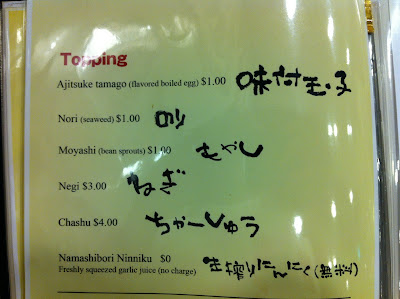 Topping
Ajitsuke tamago (flavored boiled egg) $1.00 味付玉子
Nori (seaweed) $1.00 のり
Moyashi (bean sprouts) $1.00 もやし
Negi $3.00 ねぎ
Chashu $4.00 ちゃーしゅう
Namashibori Ninniku $0 生搾りにんにく(無料)
Freshly squeezed garlic juice (no charge)